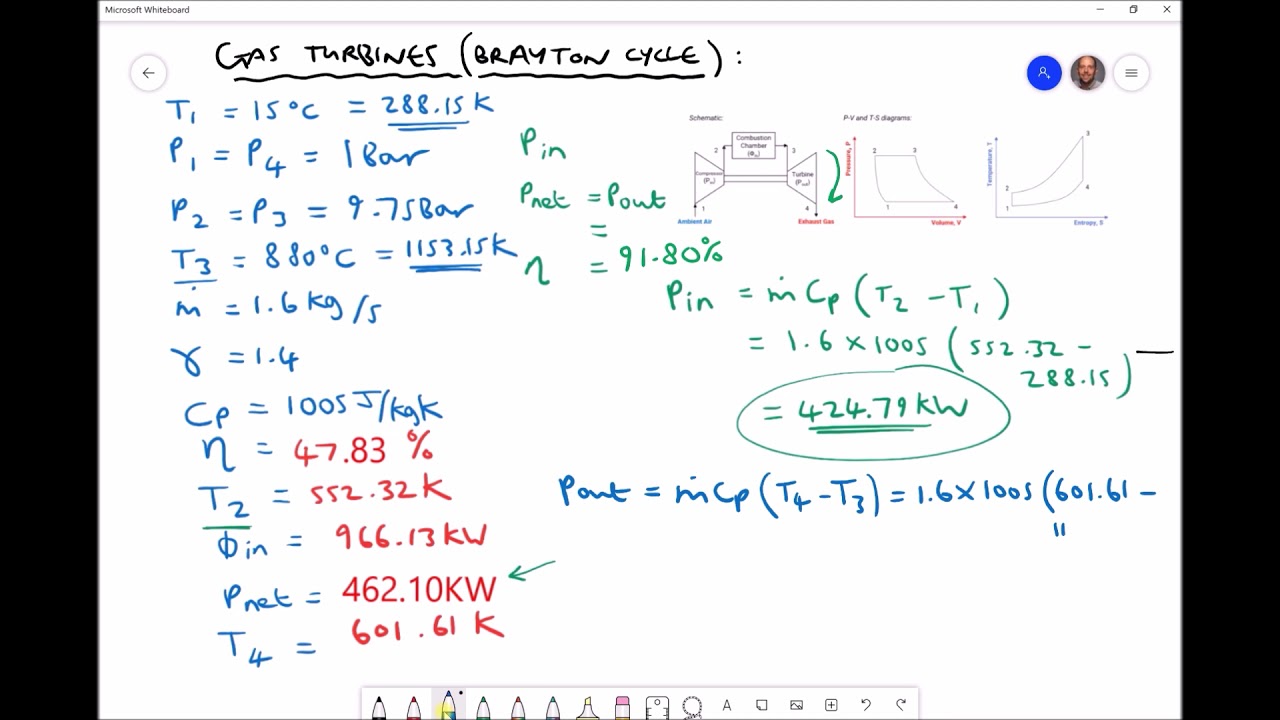 Microsoft Whiteboard
GAS TURBINES (BRAYTON CYCLE) :
T1 = 15°C = 288.15 K
P1 = P4 = 1 Bar
P2 = P3 = 9.75 Bar
T3 = 880°C = 1153.15 K
ṁ = 1.6 kg/s
γ = 1.4
Cp = 1005 J/kgK
η = 47.83 %
T2 = 552.32 K
Φin = 966.13 kW
Pnet = 462.10KW
T4 = 601.61 K
Pin
Pnet = Pout
=
η = 91.80%
Schematic:
Combustion
Chamber
(Φin)
2
3
Compressor
(Pin)
Turbine
(Pout)
1
4
Ambient Air
Exhaust Gas
P-V and T-S diagrams:
Pressure, P
2
3
1
4
Volume, V
Temperature, T
3
2
4
1
Entropy, S
Pin = ṁ Cp (T2 - T1)
= 1.6 × 1005 (552.32 -
288.15)
= 424.79 kW
Pout = ṁ Cp (T4 - T3) = 1.6 × 1005 (601.61 -
11
A